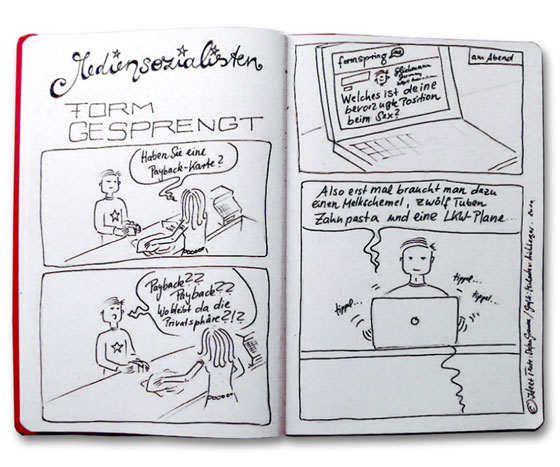 Mediensozialisten
FORM
GESPRENGT
Haben Sie eine
Payback-Karte?
Payback??
Payback??
Wo bleibt da die
Privatsphäre?!?
formspring me
am Abend
Welches ist deine
bevorzugte Position
beim Sex?
Also erst mal braucht man dazu
einen Melkschemel, zwölf Tuben
Zahnpasta und eine LKW-Plane...
tippel...
tippel...
tippel...